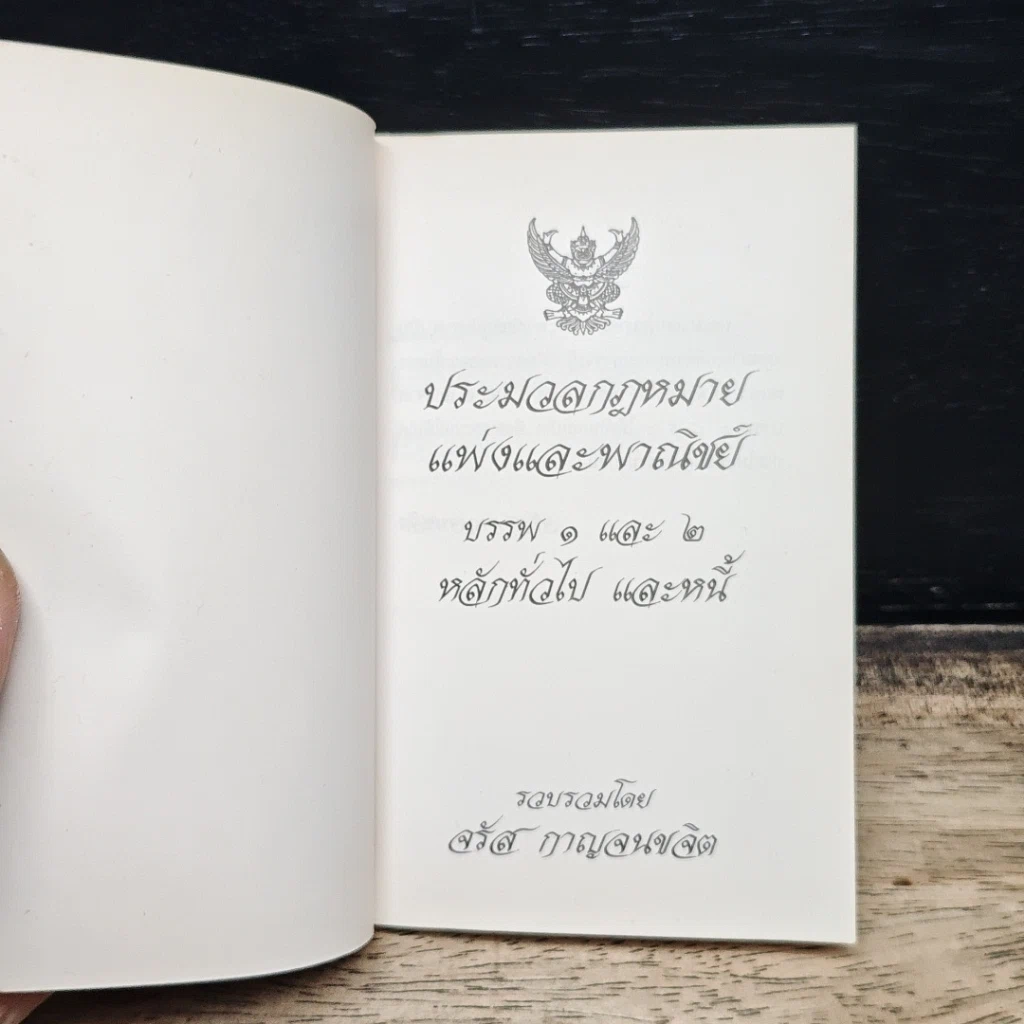 ประมวลกฎหมาย
แพ่งและพาณิชย์
บรรพ ๑ และ ๒
หลักทั่วไป และหนี้
รวบรวมโดย
จรัส กาญจนขจิต